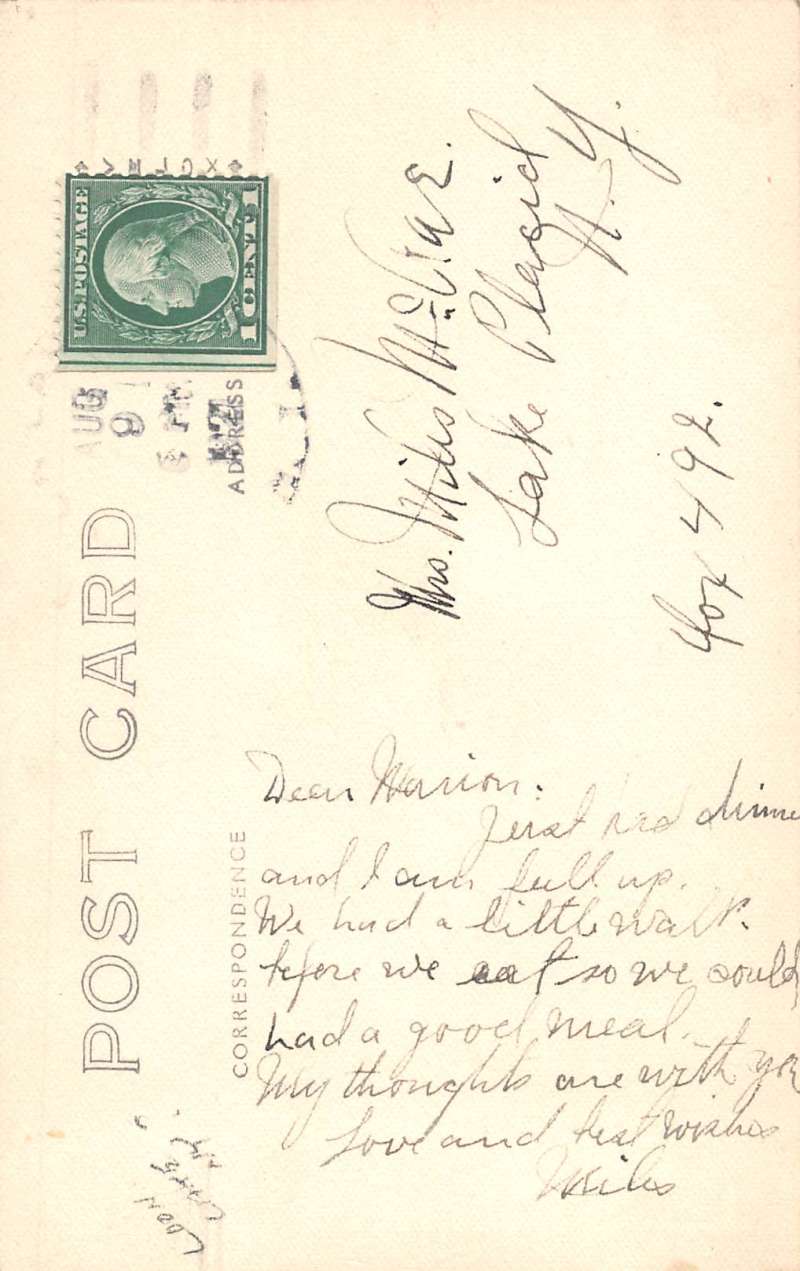 POST CARD
CORRESPONDENCE
ADDRESS
U.S. POSTAGE
1 CENT 1
AUG
9
6 PM
1921
Dear Marion:
Just had dinner
and I am full up.
We had a little walk.
before we eat so we could
had a good meal.
My thoughts are with you
Love and best wishes
Miles
Mrs. Miles McCrae.
Lake Placid
N.Y.
Box 492.